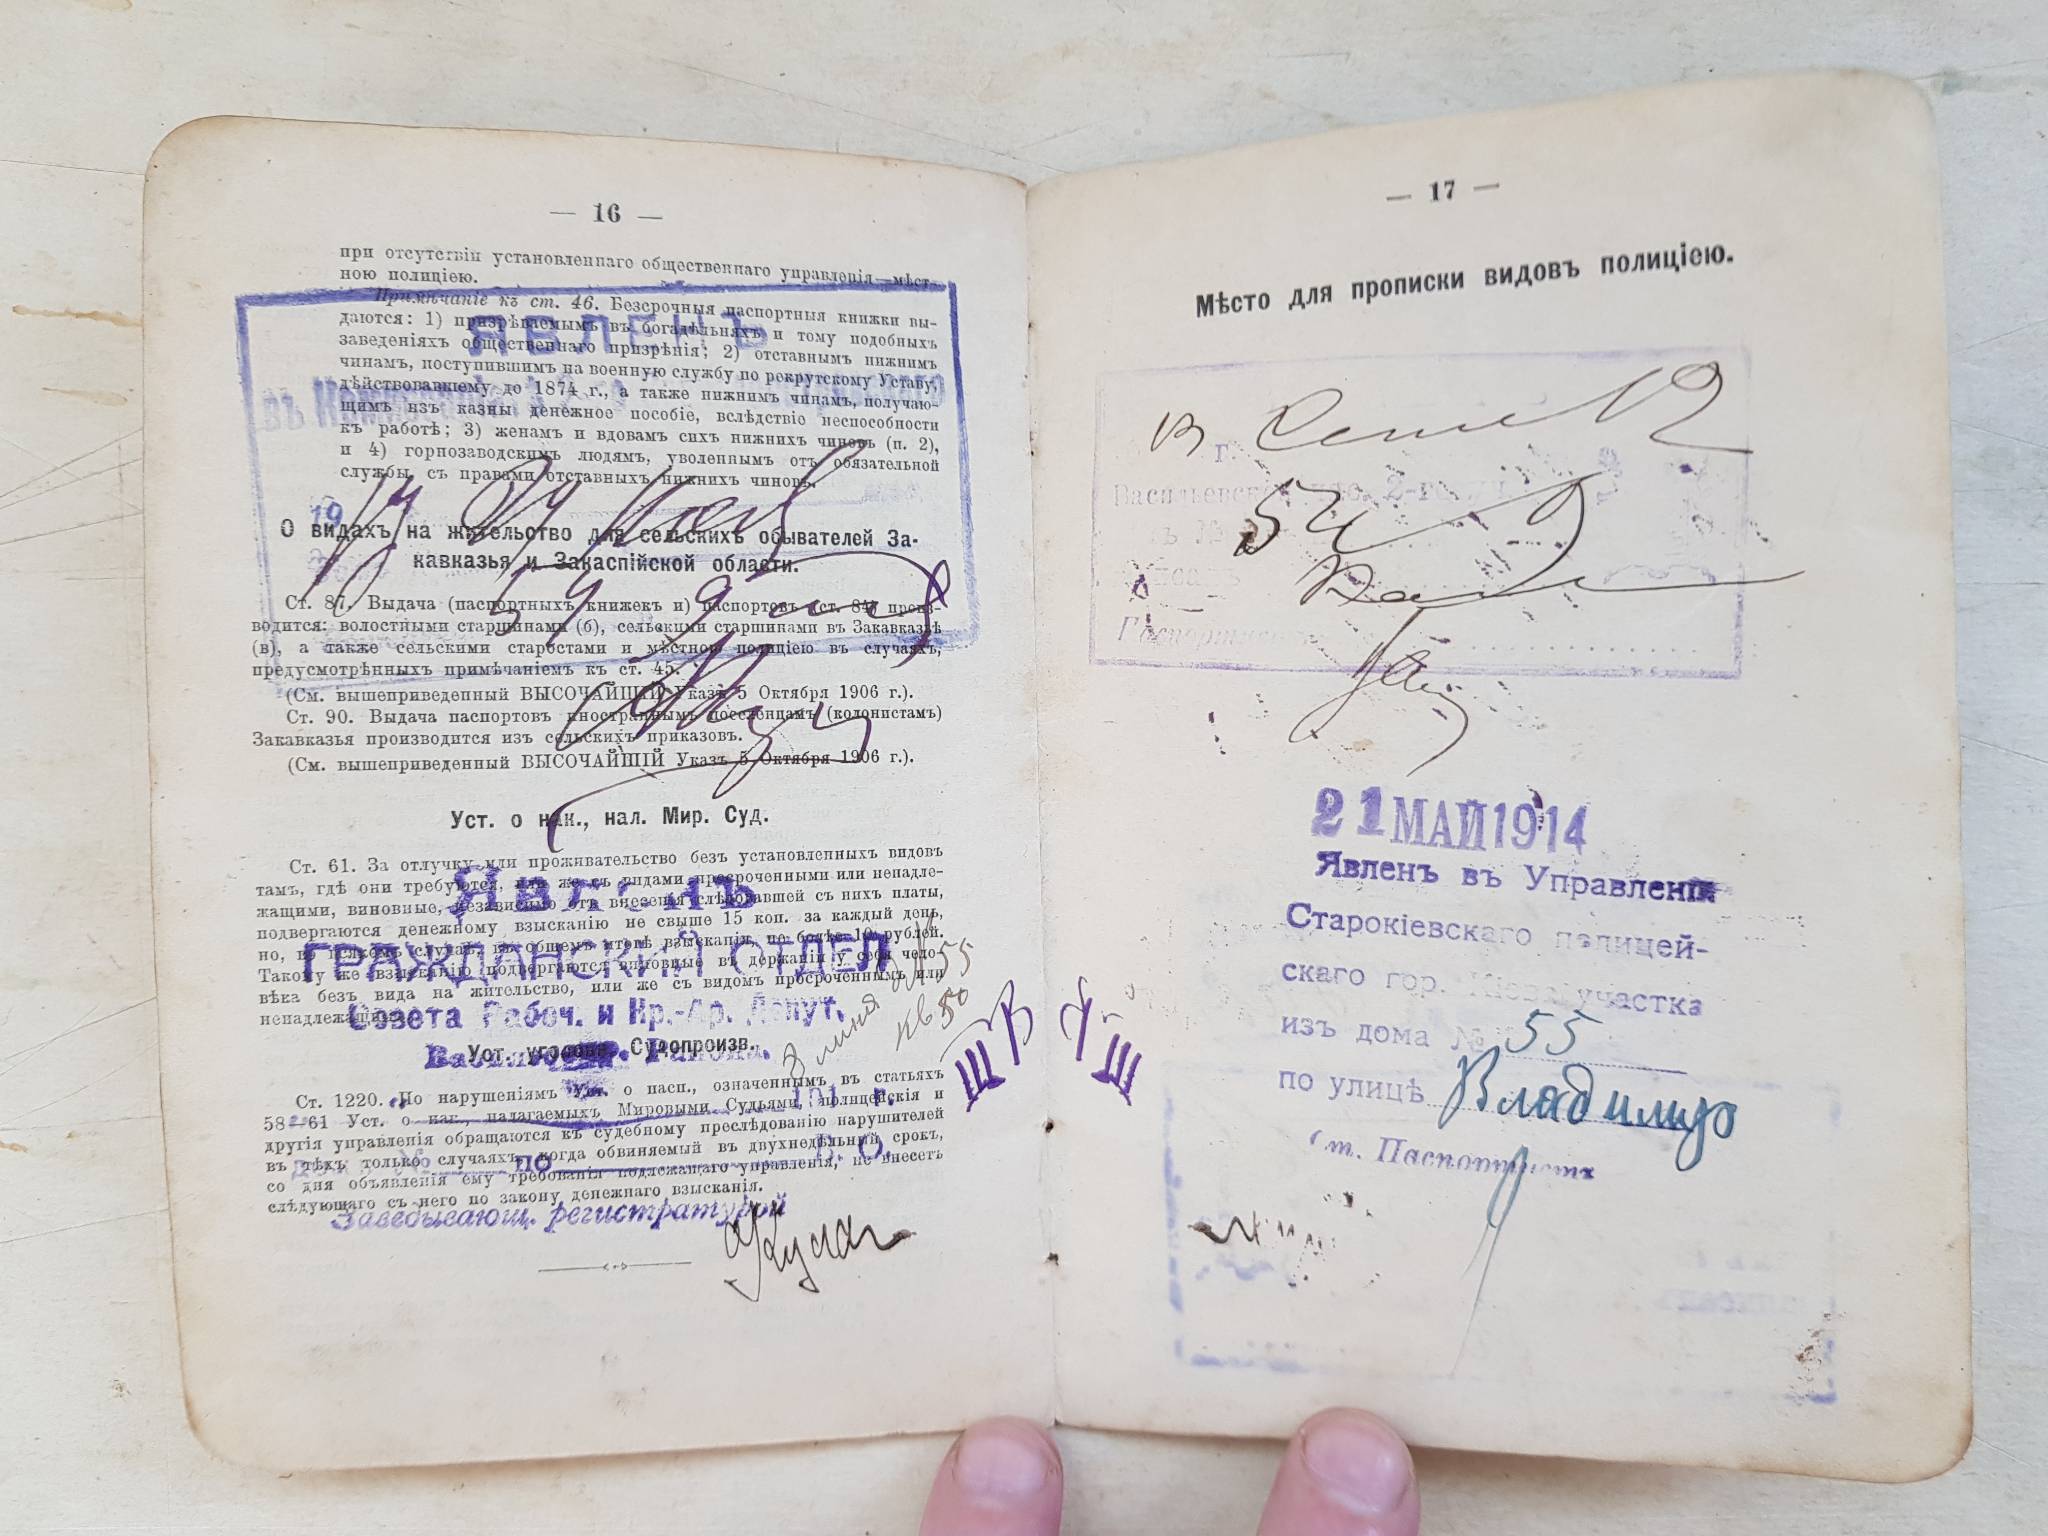 — 16 —
при отсутствіи установленнаго общественнаго управленія—мѣст-
ною полиціею.
Примѣчаніе къ ст. 46. Безсрочныя паспортныя книжки вы-
даются: 1) призрѣваемымъ въ богадѣльняхъ и тому подобныхъ
заведеніяхъ общественнаго призрѣнія; 2) отставнымъ нижнимъ
чинамъ, поступившимъ на военную службу по рекрутскому Уставу,
дѣйствовавшему до 1874 г., а также нижнимъ чинамъ, получаю-
щимъ изъ казны денежное пособіе, вслѣдствіе неспособности
къ работѣ; 3) женамъ и вдовамъ сихъ нижнихъ чиновъ (п. 2),
и 4) горнозаводскимъ людямъ, уволеннымъ отъ обязательной
службы, съ правами отставныхъ нижнихъ чиновъ.
ЯВЛЕНЪ
въ
19
О видахъ на жительство для сельскихъ обывателей За-
кавказья и Закаспійской области.
Ст. 87. Выдача (паспортныхъ книжекъ и) паспортовъ (ст. 84) произ-
водится: волостными старшинами (б), сельскими старшинами въ Закавказьѣ
(в), а также сельскими старостами и мѣстною полиціею въ случаяхъ,
предусмотрѣнныхъ примѣчаніемъ къ ст. 45.
(См. вышеприведенный ВЫСОЧАЙШІЙ Указъ 5 Октября 1906 г.).
Ст. 90. Выдача паспортовъ иностраннымъ поселенцамъ (колонистамъ)
Закавказья производится изъ сельскихъ приказовъ.
(См. вышеприведенный ВЫСОЧАЙШІЙ Указъ 5 Октября 1906 г.).
Уст. о нак., нал. Мир. Суд.
Ст. 61. За отлучку или проживательство безъ установленныхъ видовъ
тамъ, гдѣ они требуются, или же съ видами просроченными или ненадле-
жащими, виновные, независимо отъ внесенія слѣдовавшей съ нихъ платы,
подвергаются денежному взысканію не свыше 15 коп. за каждый день,
но, во всякомъ случаѣ, въ общемъ итогѣ взысканія, не болѣе 10 рублей.
Такому же взысканію подвергаются виновные въ держаніи у себя чело-
вѣка безъ вида на жительство, или же съ видомъ просроченнымъ или
ненадлежащимъ.
Явленъ
ГРАЖДАНСКИЙ ОТДЕЛ
Совета Рабоч. и Кр.-Ар. Депут.
Района.
8 линия д. 55
кв 50
Уст. уголовн. Судопроизв.
Ст. 1220. По нарушеніямъ Уст. о пасп., означеннымъ въ статьяхъ
58—61 Уст. о нак., налагаемыхъ Мировыми Судьями, полицейскія и
другія управленія обращаются къ судебному преслѣдованію нарушителей
въ тѣхъ только случаяхъ, когда обвиняемый въ двухнедѣльный срокъ,
со дня объявленія ему требованія подлежащаго управленія, не внесетъ
слѣдующаго съ него по закону денежнаго взысканія.
191 г.
по В. О.
Заведывающ. регистратурой
— 17 —
Мѣсто для прописки видовъ полиціею.
г.
2-го
54
21 МАЙ 1914
Явленъ въ Управленія
Старокіевскаго полицей-
скаго гор. Кіева участка
изъ дома № 55
по улицѣ Владимир
Ст. Паспортистъ